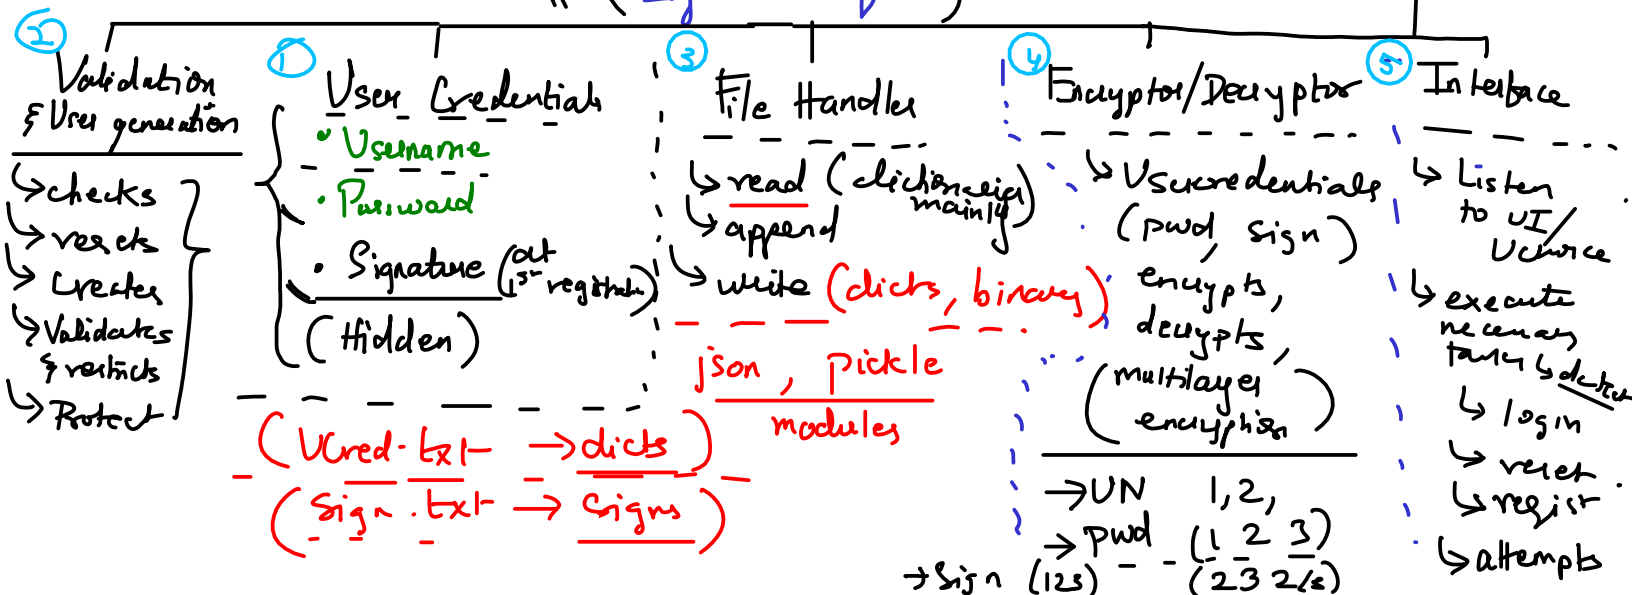 2
Validation
& User generation
checks
resets
Creates
Validates
& restricts
Protect
1
User Credentials
• Username
• Password
• Signature (at 1st registration)
(Hidden)
(UCred.txt → dicts)
(Sign.txt → Signs)
3
File Handler
read (dictionaries mainly)
append
write (dicts, binary)
json, pickle
modules
4
Encryptor/Decryptor
Usercredentials
(pwd, sign)
encrypts,
decrypts,
(multilayer
encryption)
→ UN 1,2,
→ pwd (1 2 3)
→ Sign (123) (23 2/3)
5
Interface
Listen
to UI/
Uchoice
execute
necessary
tasks
login
reset
regist
attempts